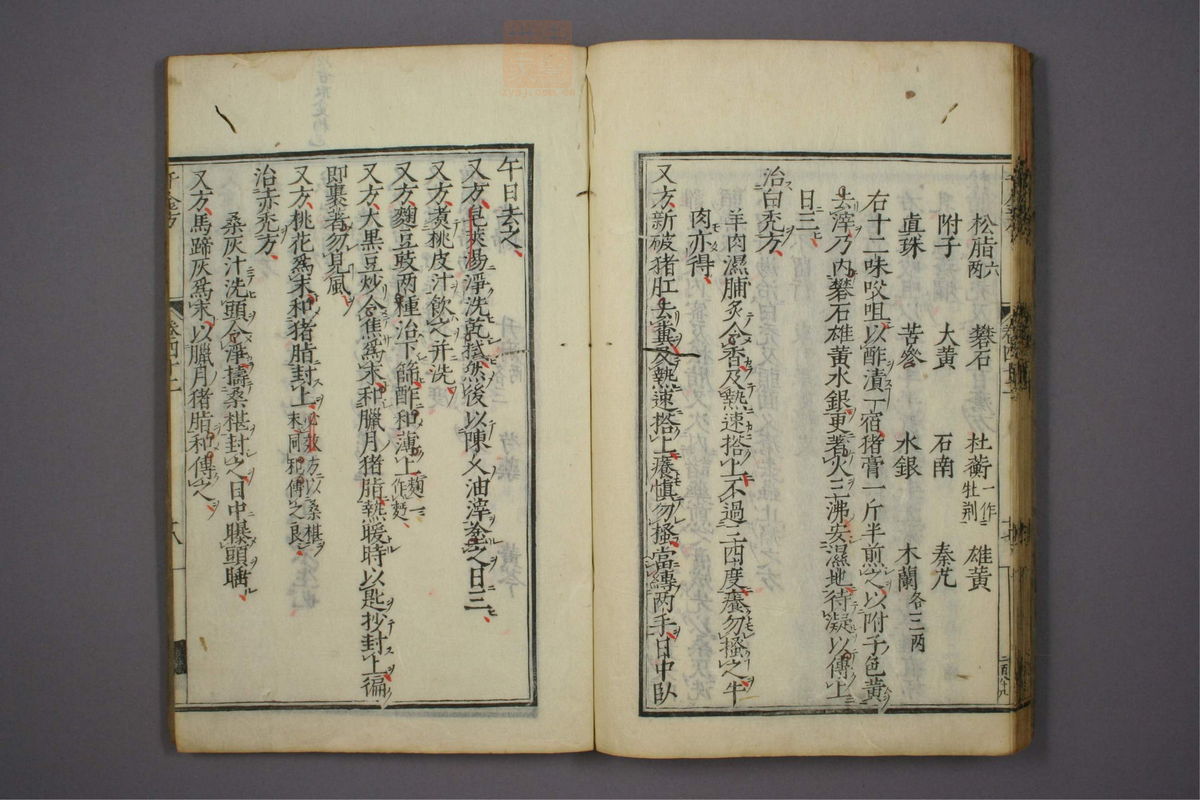 松脂六兩 礬石 杜蘅一作牡荆 雄黃
附子 大黃 石南 秦艽
真珠 苦參 水銀 木蘭各三兩
右十二味㕮咀以酢漬一宿猪膏一斤半煎之以附子色黃
去滓乃内礬石雄黄水銀更著火三沸安濕地待凝以傅上
日三
治白禿方
羊肉濕脯炙令香及熱速搭上不過三四度痒勿搔之牛
肉亦得
又方新破猪肚去糞及熱速搭上痒慎勿搔當縛兩手日中臥
午日去之
又方皂莢湯淨洗乾拭然後以陳久油滓塗之日三
又方煮桃皮汁飲之并洗
又方麴豆豉兩種治下篩酢和薄上麴一作麪
又方大黑豆炒令焦爲末和臘月猪脂熱暖時以匙抄封上徧
即裹著勿見風
又方桃花爲末和猪脂封上必效方以桑椹末同和傅之良
治赤禿方
桑灰汁洗頭令淨擣桑椹封之日中曝頭睡
又方馬蹄灰爲末以臘月猪脂和傅之
千金方 卷四十二